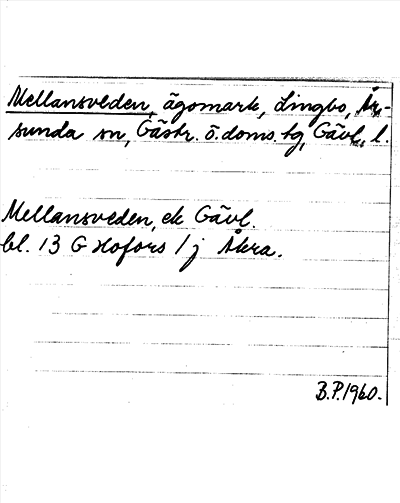 Mellansveden, ägomark, Lingbo, År-
sunda sn, Gästr. ö. doms. tg, Gävl. l.
Mellansveden, ek Gävl.
bl. 13 G Hofors 1/j Åkra.
B.P. 1960.